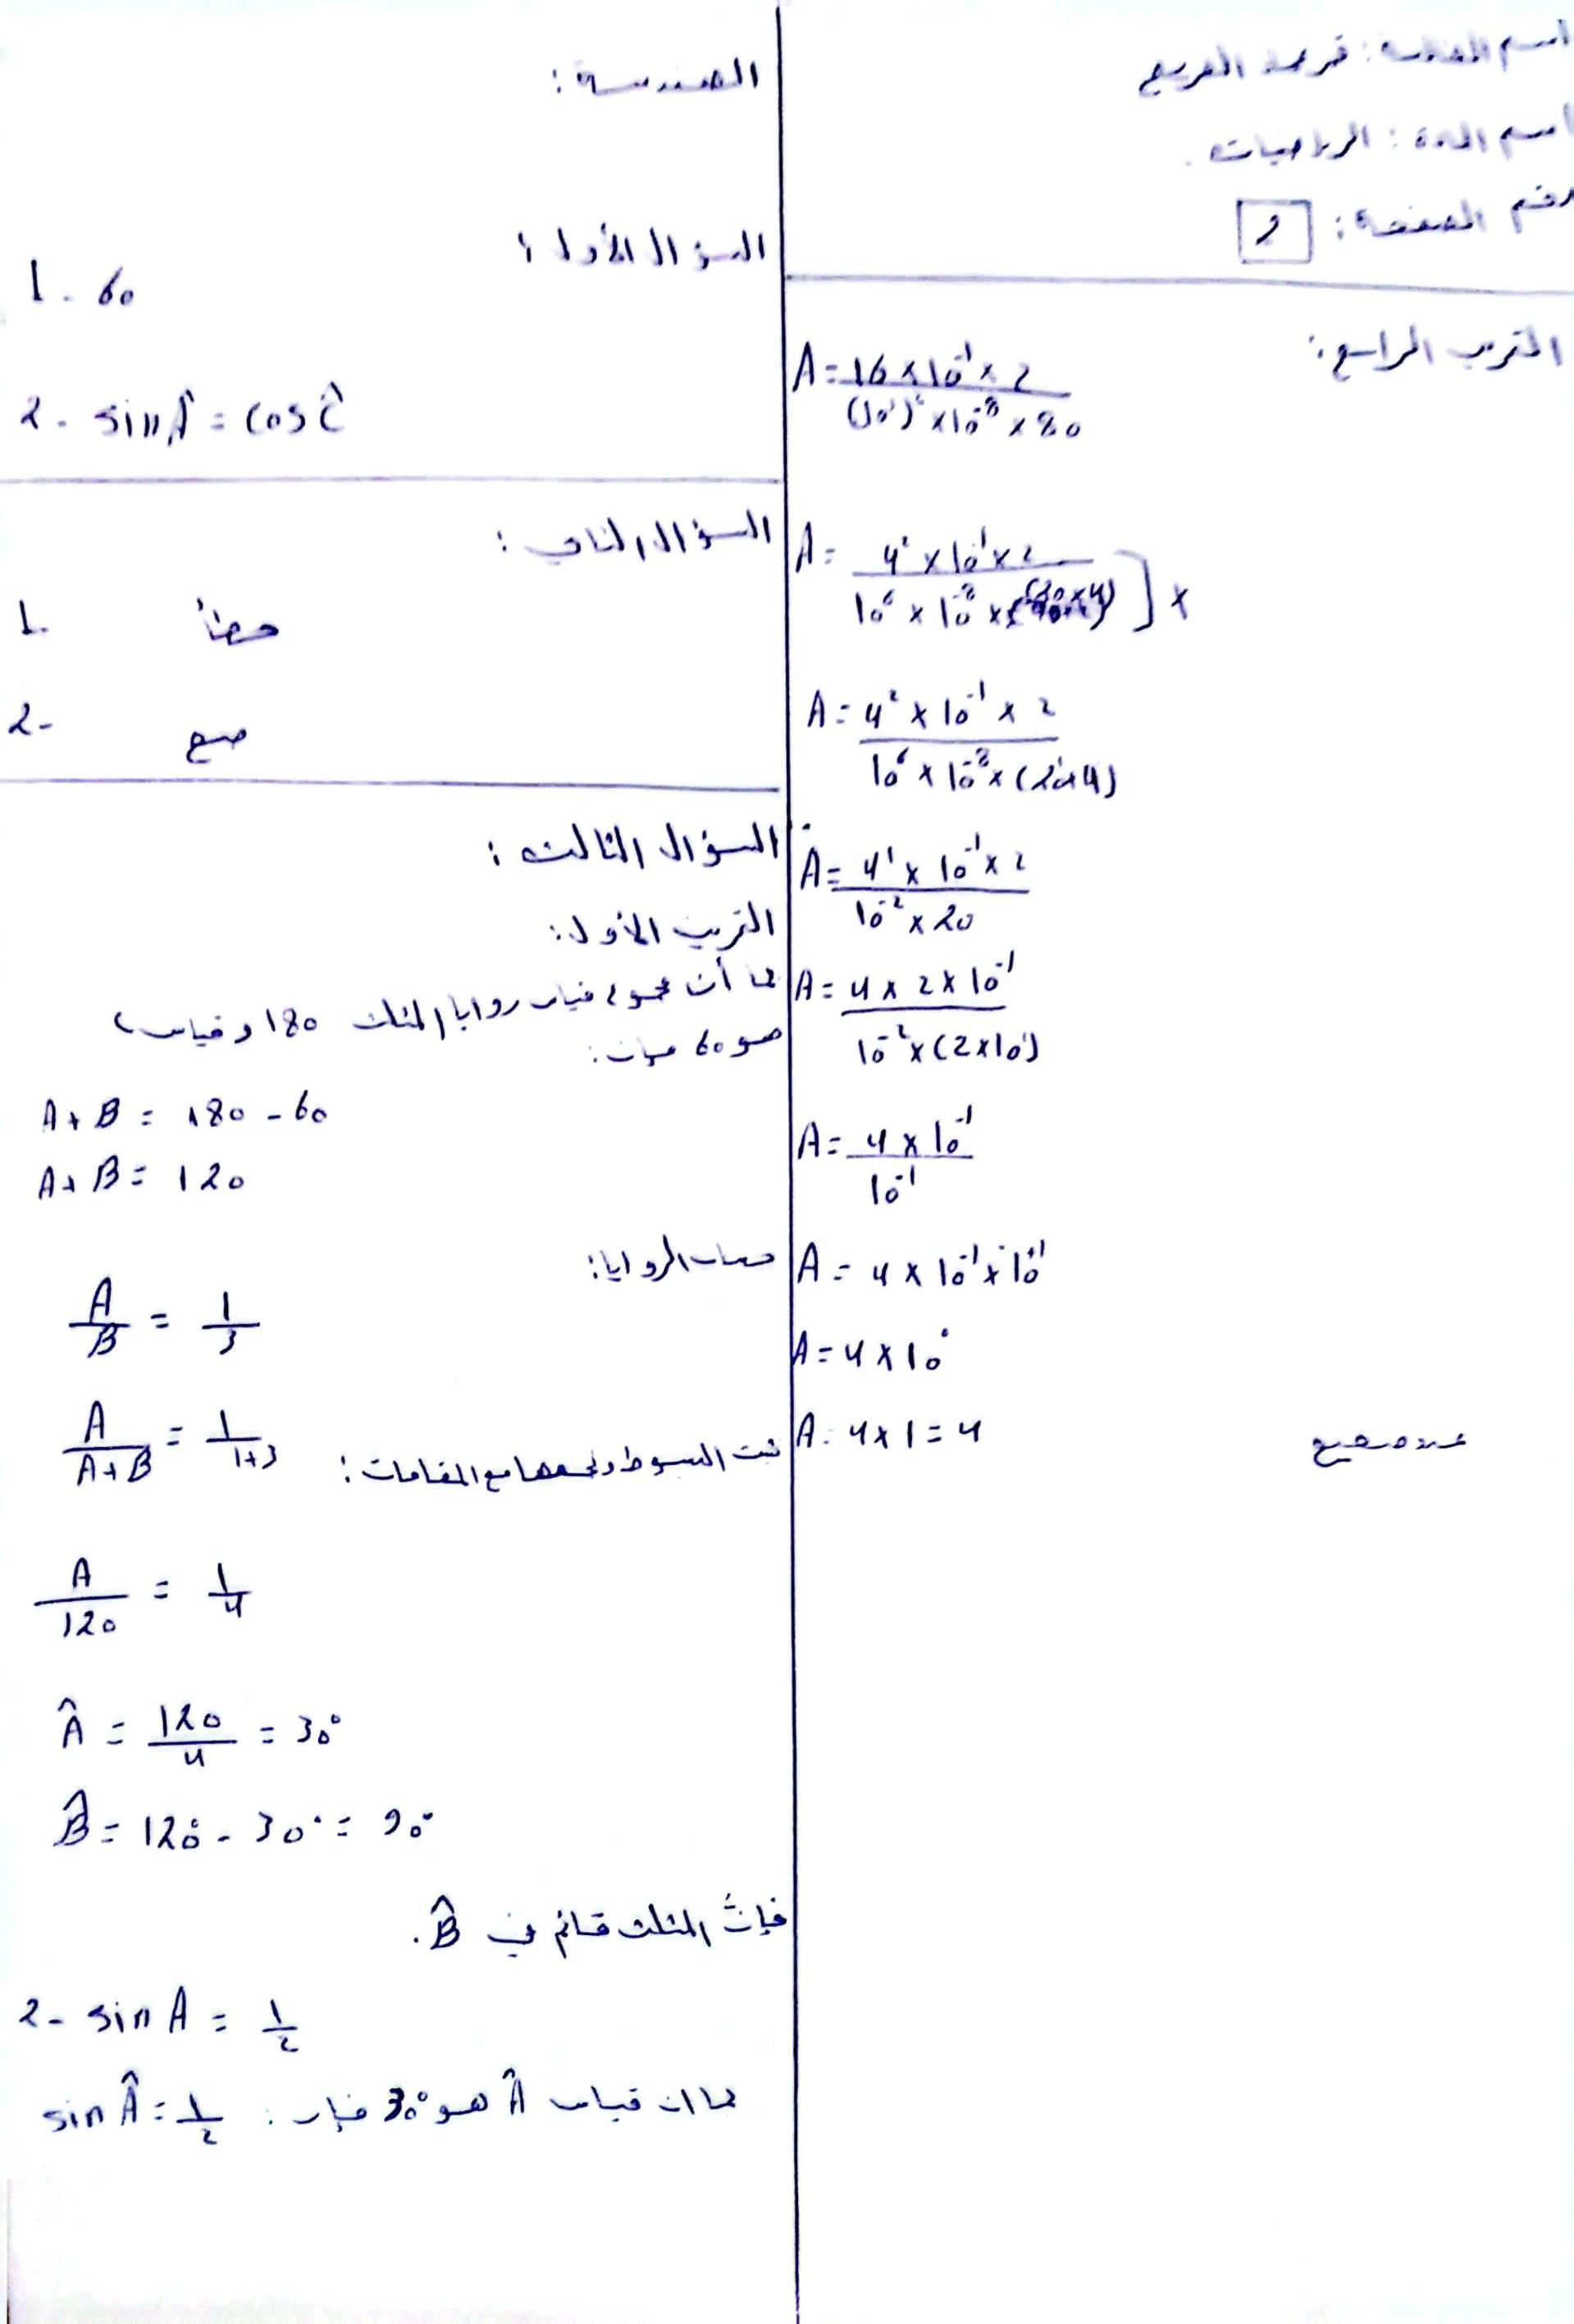 اسم المدرسة: قرحمة الفريج
اسم المادة: الرياضيات.
رقم الصفحة: 2
التمرين الرابع:
A = 16 × 10⁻¹ × 2 / (10³)² × 10⁻⁸ × 80
A = 4² × 10⁻¹ × 2 / 10⁶ × 10⁻⁸ × (20×4) ] ×
A = 4² × 10⁻¹ × 2 / 10⁶ × 10⁻⁸ × (20×4)
A = 4¹ × 10⁻¹ × 2 / 10⁻² × 20
A = 4 × 2 × 10⁻¹ / 10⁻² × (2×10¹)
A = 4 × 10⁻¹ / 10⁻¹
A = 4 × 10⁻¹ × 10⁺¹
A = 4 × 10⁰
A = 4 × 1 = 4 عدد صحيح
الهندسة:
السؤال الأول:
1. 60
2. sin Â = cos Ĉ
السؤال الثاني:
1. خطأ
2- صح
السؤال الثالث:
التمرين الأول:
بما أن مجموع قياس زوايا المثلث 180 وقياس C
هو 60 فإن:
A + B = 180 - 60
A + B = 120
حساب الزوايا:
A/B = 1/3
نثبت البسوط ونجمعها مع المقامات:
A/A+B = 1/1+3
A/120 = 1/4
Â = 120/4 = 30°
B̂ = 120° - 30° = 90°
فإن المثلث قائم في B̂.
2- sin A = 1/2
بما ان قياس Â هو 30° فإن: sin Â = 1/2